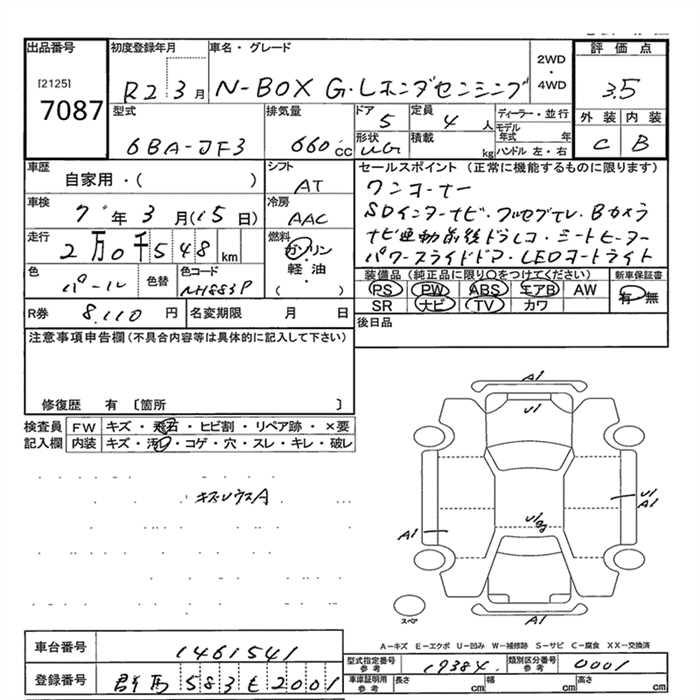 出品番号
[2125]
7087
初度登録年月
R2.3月
車名・グレード
N-BOX G・Lホンダセンシング
2WD
・
4WD
評価点
3.5
外装 内装
C B
型式
6BA-JF3
排気量
660cc
ドア
5
定員
4人
形状
積載
kg
ディーラー・並行
モデル
年式 年
ハンドル 左・右
車歴
自家用・( )
シフト
AT
車検
7年3月(15日)
冷房
AAC
走行
2万0千548km
燃料
ガソリン
軽・油
( )
色
パール
色替
色コード
NH883P
R券
8,110円
名変期限 月 日
セールスポイント (正常に機能するものに限ります)
ワンオーナー
SDインターナビ・フルセグTV・Bカメラ
ナビ連動前後ドラレコ・シートヒーター
パワースライドドア・LEDヘッドライト
装備品 (純正品に限り○をつけてください)
新車保証書
PS PW ABS エアB AW
SR ナビ TV カワ
有・無
後日品
注意事項申告欄(不具合内容等は具体的に記入して下さい)
修復歴 有〔箇所 〕
検査員
記入欄
FW キズ・飛石・ヒビ割・リペア跡・×要
内装 キズ・汚レ・コゲ・穴・スレ・キレ・破レ
A1
U1
A1
U1
A1
A1
スペア
A-キズ E-エクボ U-凹み W-補修跡 S-サビ C-腐食 XX-交換済
車台番号
1461541
登録番号
群馬583 2001
型式指定番号
参考
19384
類別区分番号
参考
0001
車庫証明用
参考
長さ cm 幅 cm 高さ cm